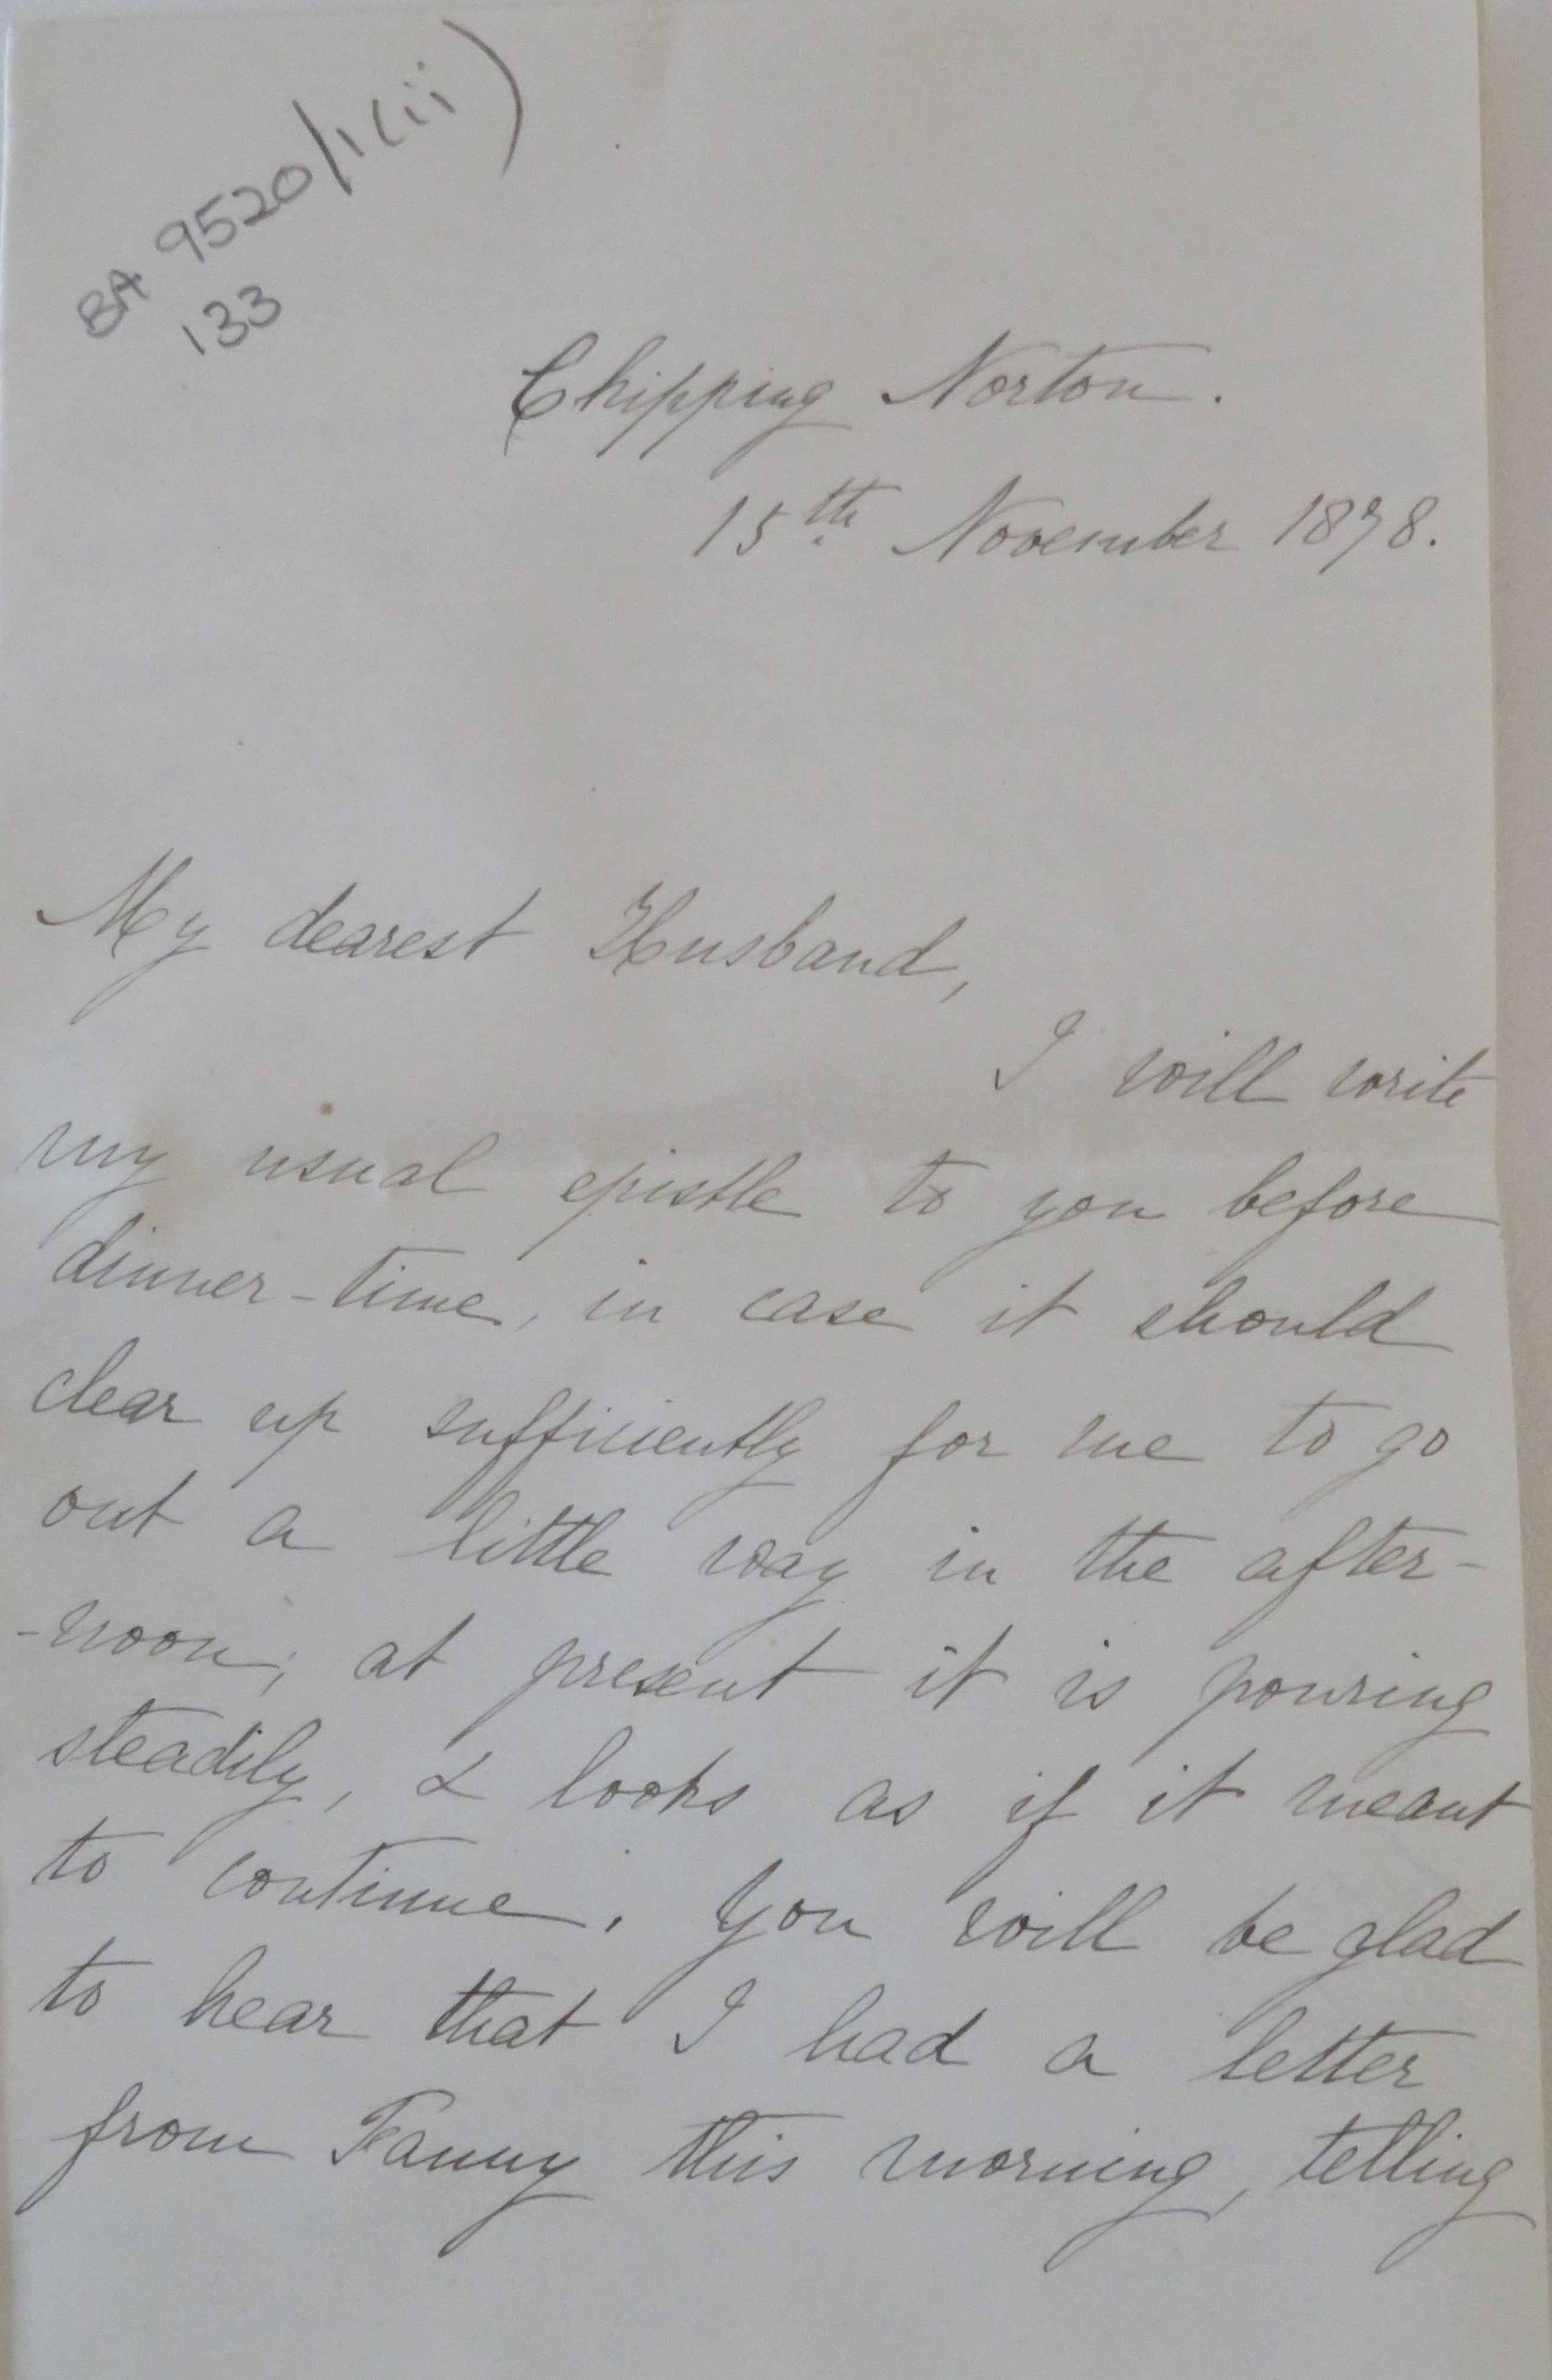 BA 9520/1(ii)
133
Chipping Norton.
15th November 1878.
My dearest Husband,
I will write
my usual epistle to you before
dinner-time, in case it should
clear up sufficiently for me to go
out a little way in the after-
-noon; at present it is pouring
steadily, & looks as if it meant
to continue. You will be glad
to hear that I had a letter
from Fanny this morning, telling